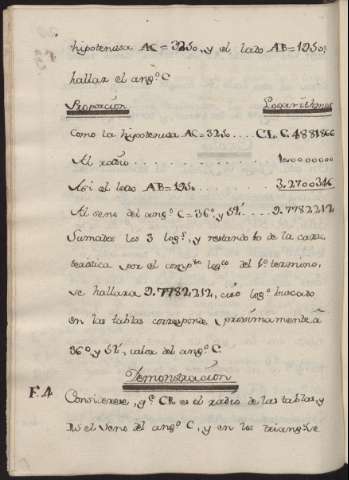 hipotenusa AC = 3250, y el lado AB = 1950:
hallar el ang.º C
Proporcion Logarithmos
Como la hipotenusa AC = 3250 .... C.L. 6.4881866
Al radio ............ 10.0000000
Asi el lado AB = 1950 .......... 3.2700346
Al seno del ang.º C = 36º, y 52' ..... 9.7782212
Sumados los 3 log.s, y restando 10 de la carac-
teristica por el comp.to log.co del 1º termino,
se hallara 9.7782212, cuio log.º buscado
en las tablas corresponde proximamente à
36º, y 52', valor del ang.º C.
Demonstracion
F.4 Considerese, q.e CR es el radio de las tablas, y
RS el seno del ang.º C, y en los triangle